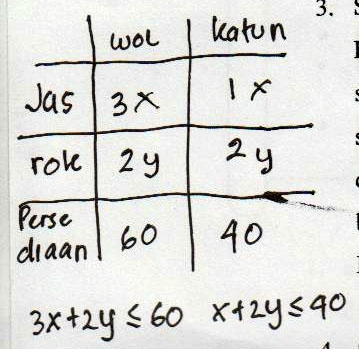 3.
wol katun
Jas 3x 1x
rok 2y 2y
Perse
diaan 60 40
3x+2y ≤ 60 x+2y ≤ 40